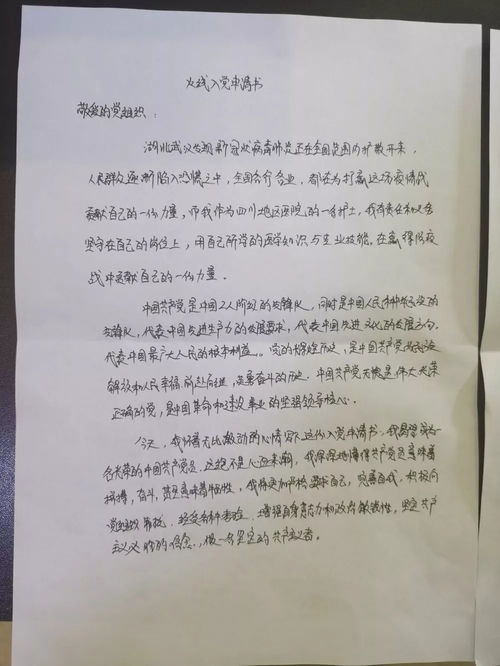 火线入党申请书
敬爱的党组织：
湖北武汉发现新冠状病毒肺炎还在全国范围内扩散开来，
人民群众逐渐陷入恐慌之中，全国各行各业，都在为打赢这场疫情战
贡献自己的一份力量，而我作为四川地区医院的一名护士，我有责任和义务
坚守在自己的岗位上，用自己所学的医学知识与专业技能。在赢得防疫
战中贡献自己的一份力量。
中国共产党是中国工人阶级的先锋队，同时是中国人民和中华民族的
先锋队，代表中国先进生产力的发展要求，代表中国先进文化的发展方向。
代表中国最广大人民的根本利益。党的辉煌历史，是中国共产党为民族
解放和人民幸福，前赴后继，英勇奋斗的历史。中国共产党无愧是伟大光荣
正确的党，是中国革命和建设事业的坚强领导核心。
今天，我怀着无比激动的心情写下这份入党申请书，我渴望成为
名光荣的中国共产党员，这绝不是心血来潮，我深深地懂得共产党员意味着
拼搏，奋斗，甚至意味着牺牲，我将更加严格要求自己，完善自我，积极向
党组织靠拢，经受各种考验，增强自身意志力和政治敏感性，坚定共产
主义必胜的信念，做一名坚定的共产主义者。